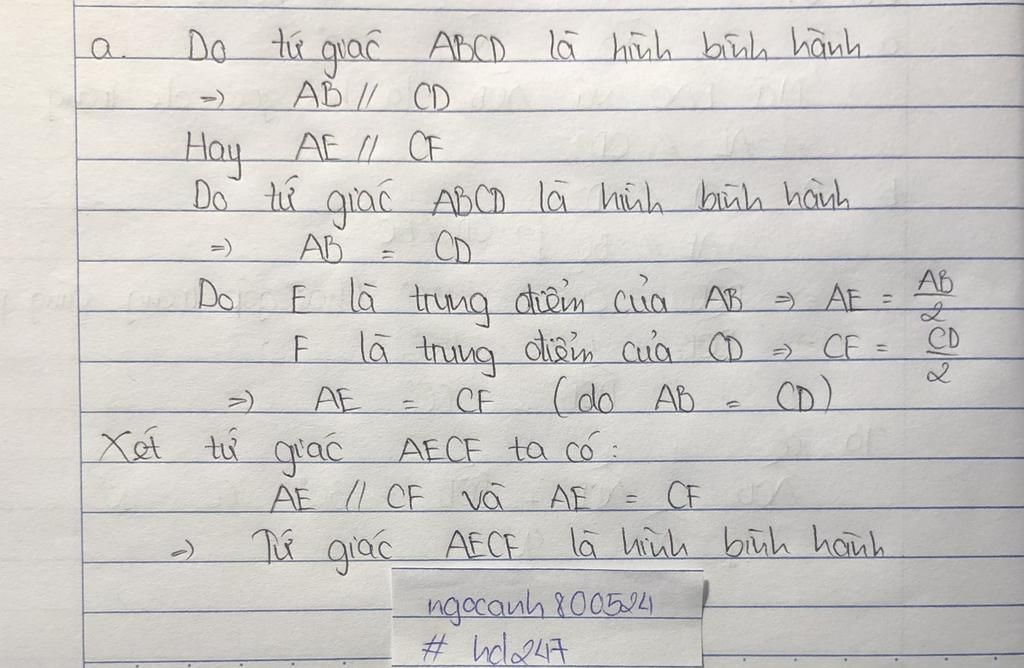 a. Do tứ giác ABCD là hình bình hành
=> AB // CD
Hay AE // CF
Do tứ giác ABCD là hình bình hành
=> AB = CD
Do E là trung điểm của AB => AE = AB/2
F là trung điểm của CD => CF = CD/2
=> AE = CF (do AB = CD)
Xét tứ giác AECF ta có:
AE // CF và AE = CF
=> Tứ giác AECF là hình bình hành
ngocanh800524
# hd247